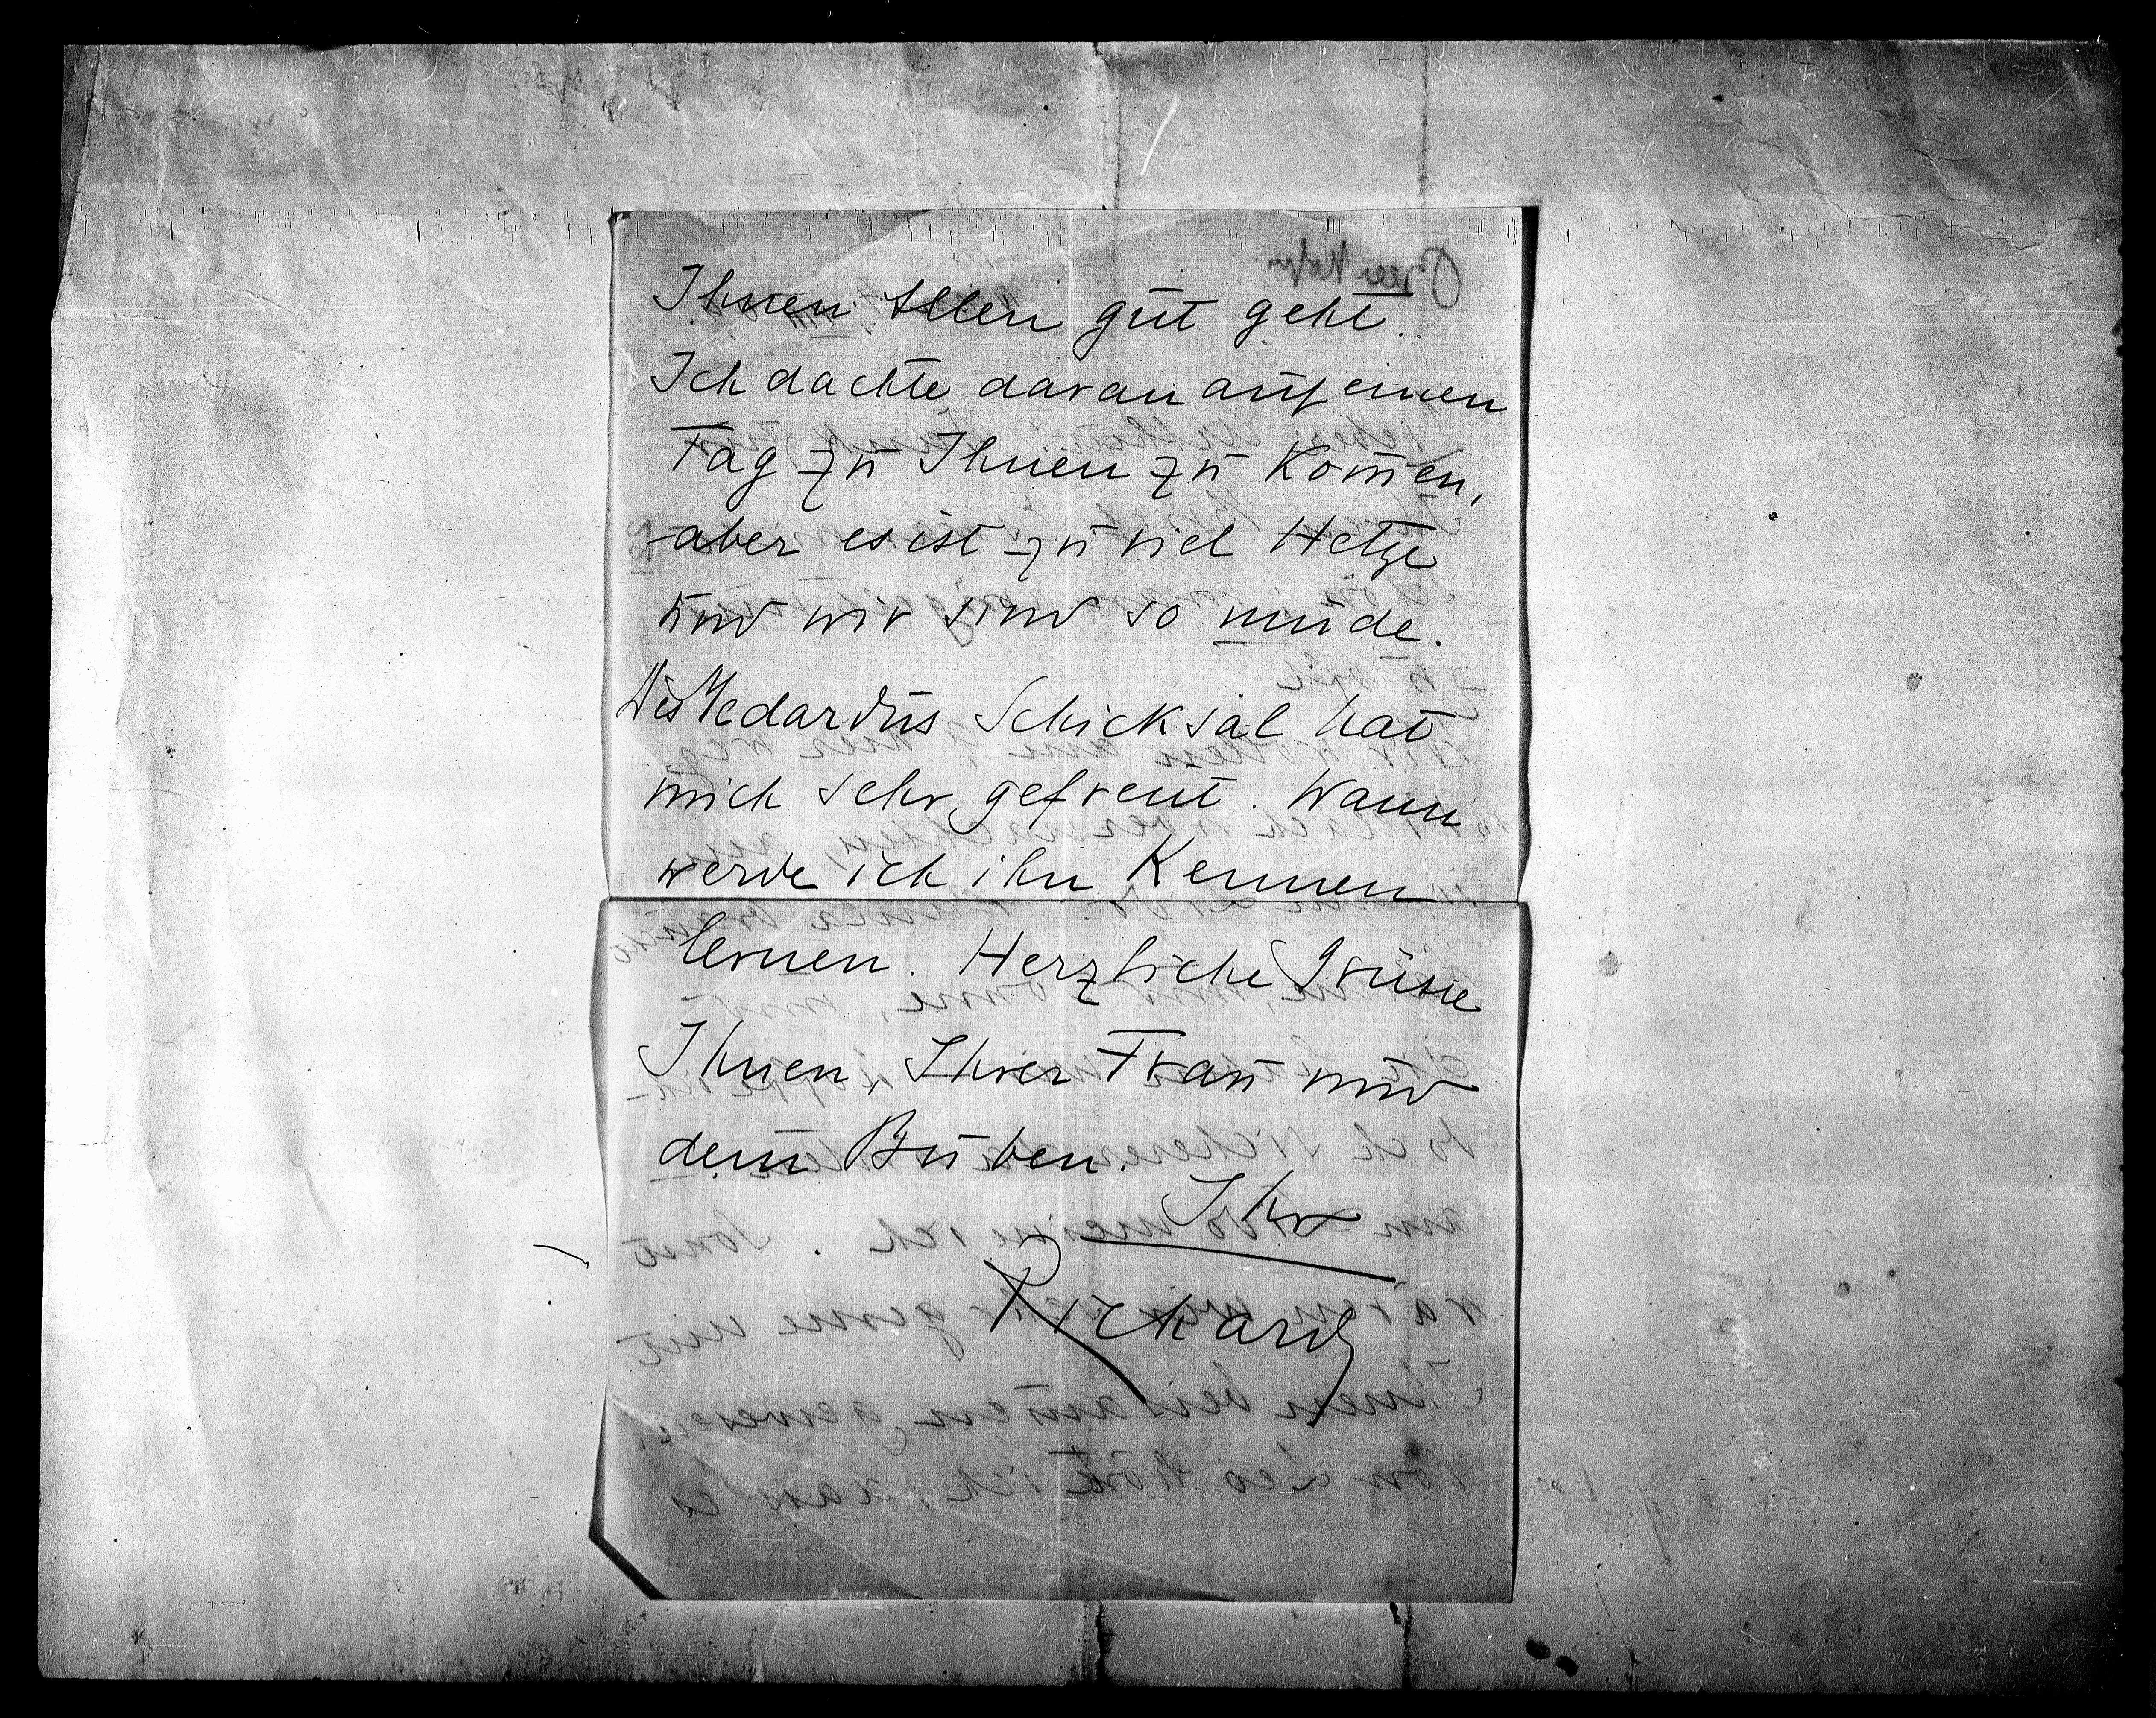 Ihnen Allen gut geht.
Ich dachte daran auf einen
Tag zu Ihnen zu kom̅en,
aber es ist zu viel Hetze
und wir sind so müde.
Des Medardus Schicksal hat
mich sehr gefreut. Wann
werde ich ihn kennen
lernen. Herzliche Grüsse
Ihnen, Ihrer Frau und
dem Buben.
Ihr
Richard